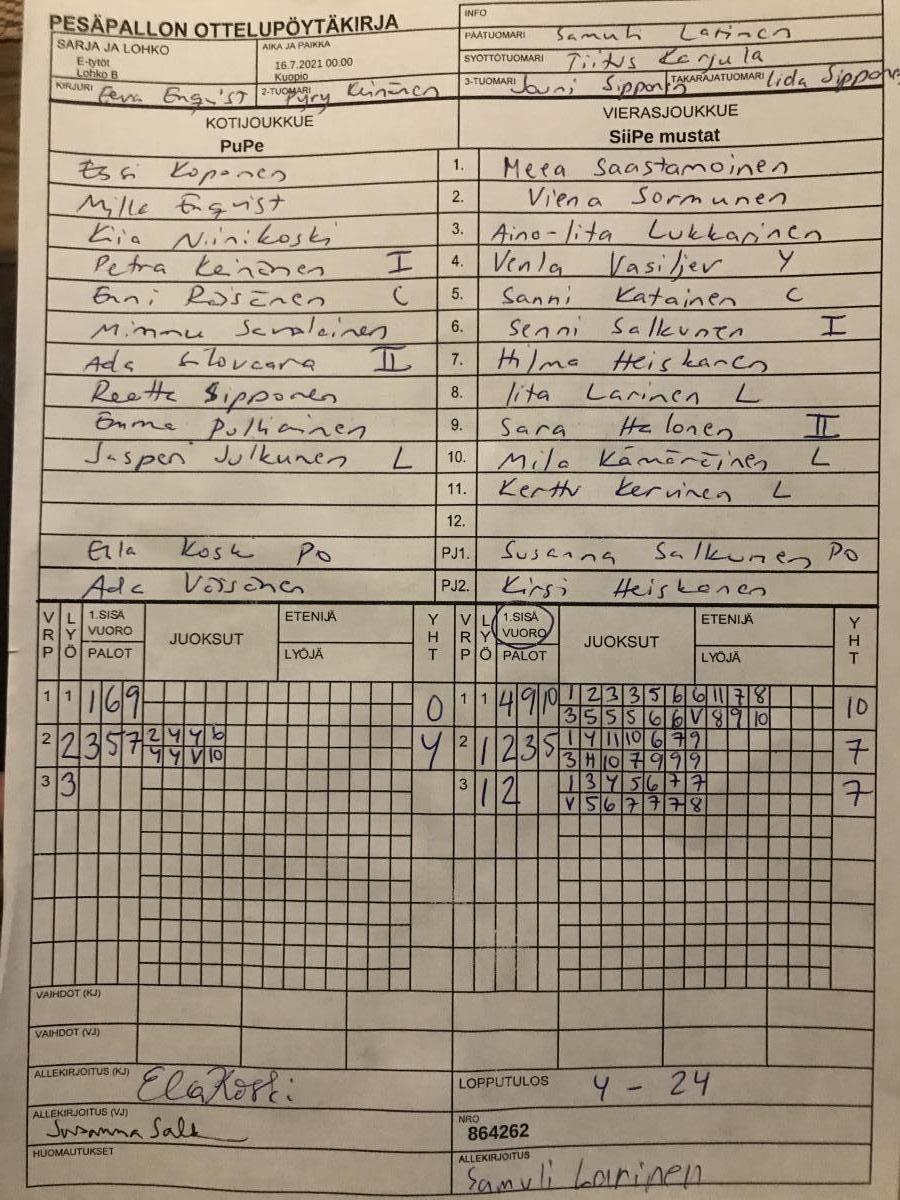 PESÄPALLON OTTELUPÖYTÄKIRJA
INFO
PÄÄTUOMARI Samuli Larinen
SYÖTTÖTUOMARI Tiitus Karjula
3-TUOMARI Jouni Sipponen TAKARAJATUOMARI Iida Sipponen
SARJA JA LOHKO
E-tytöt
Lohko B
AIKA JA PAIKKA
16.7.2021 00:00
Kuopio
KIRJURI Eeva Enqvist 2-TUOMARI Pyry Keinänen
KOTIJOUKKUE
PuPe
VIERASJOUKKUE
SiiPe mustat
Essi Koponen 1. Meea Saastamoinen
Milla Enqvist 2. Viena Sormunen
Kia Niinikoski 3. Aino-Iita Lukkarinen
Petra Keinänen I 4. Venla Vasiljev Y
Enni Räisänen C 5. Sanni Katainen C
Mimmu Savolainen 6. Senni Salkunen I
Ada II 7. Hilma Heiskanen
Reetta Sipponen 8. Iita Larinen L
Emma Pulliainen 9. Sara Halonen II
Jasperi Julkunen L 10. Mila Kämäräinen L
11. Kerttu Kervinen L
12.
Ella Koski PO PJ1. Susanna Salkunen PO
Ada Väisänen PJ2. Kirsi Heiskanen
VRP LYÖ 1.SISÄ VUORO PALOT JUOKSUT ETENIJÄ LYÖJÄ YHT VRP LYÖ 1.SISÄ VUORO PALOT JUOKSUT ETENIJÄ LYÖJÄ YHT
1 1 1 6 9 0 1 1 4 9 10 1 2 3 3 5 6 6 11 7 8 10
3 5 5 5 6 6 V 8 9 10
2 2 3 5 7 2 4 4 6 4 2 1 2 3 5 1 4 11 10 6 7 9 7
4 4 V 10 3 H 10 7 9 9 9
3 3 3 1 2 1 3 4 5 6 7 7 7
V 5 6 7 7 7 8
VAIHDOT (KJ)
VAIHDOT (VJ)
ALLEKIRJOITUS (KJ) Ella Koski
LOPPUTULOS 4 - 24
ALLEKIRJOITUS (VJ) Susanna Salk
NRO
864262
HUOMAUTUKSET
ALLEKIRJOITUS
Samuli Larinen